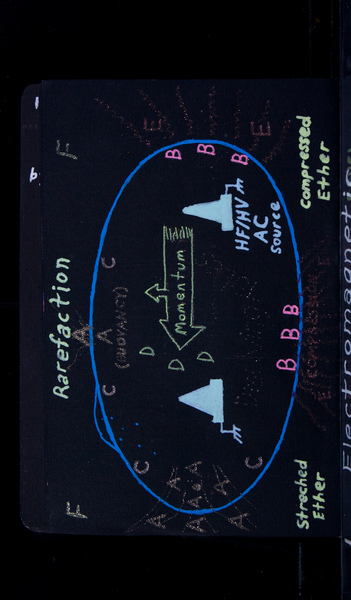 b.
F Rarefaction F
A
C A C
(BUOYANCY)
C
D
E
A
A
B
D
Momentum
A A A
D
B
A
A
B
HF/HV
C
E
AC
source
B B B
E COMPRESSION E
Streched
Ether
compressed
Ether
Electromagneti